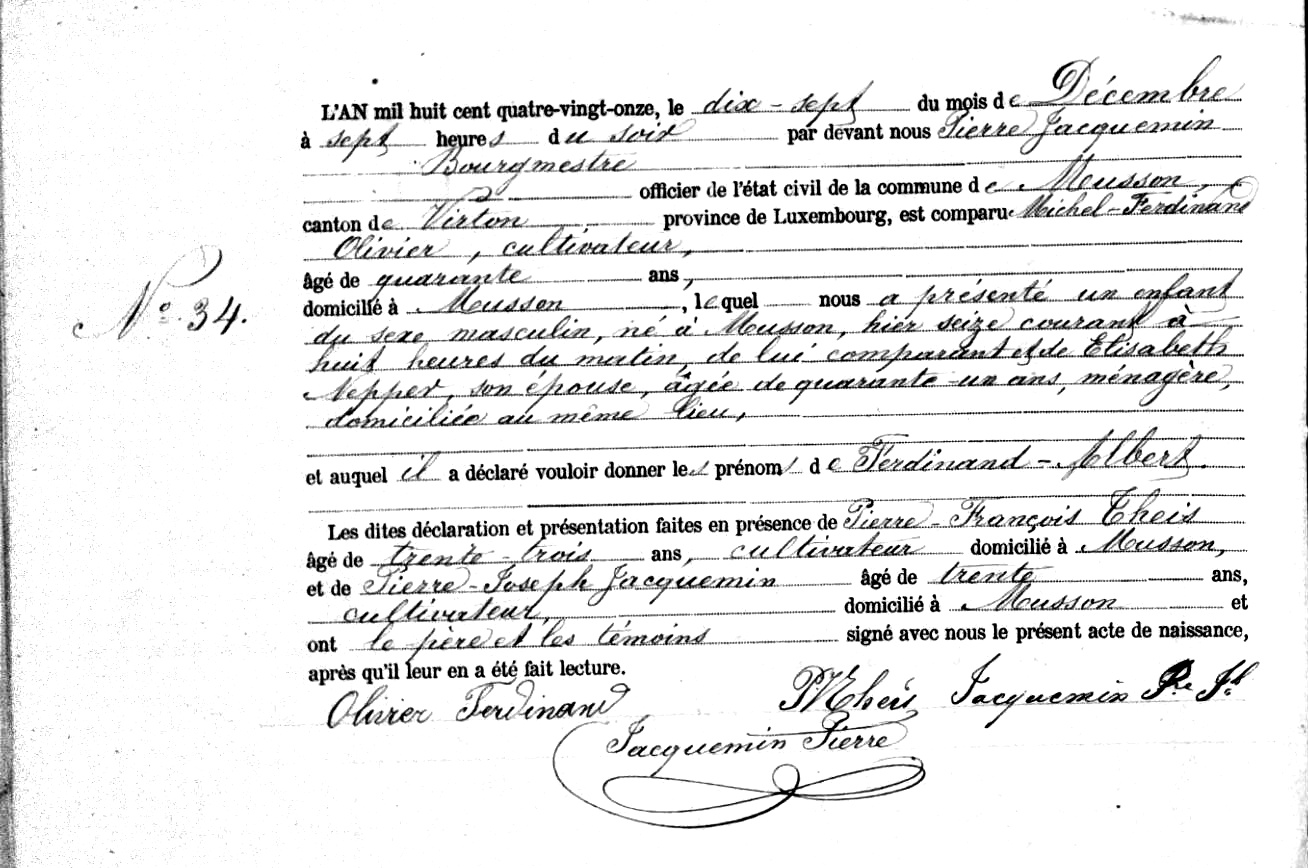 L'AN mil huit cent quatre-vingt-onze, le dix-sept du mois de Décembre
à sept heures du soir par devant nous Pierre Jacquemin
Bourgmestre
officier de l'état civil de la commune de Musson,
canton de Virton province de Luxembourg, est comparu Michel-Ferdinand
Olivier, cultivateur,
âgé de quarante ans,
domicilié à Musson, lequel nous a présenté un enfant
No. 34.
du sexe masculin, né à Musson, hier seize courant à
huit heures du matin, de lui comparant et de Elisabeth
Nepper, son épouse, âgée de quarante-un ans, ménagère,
domiciliée au même lieu,
et auquel il a déclaré vouloir donner les prénoms de Ferdinand-Albert.
Les dites déclaration et présentation faites en présence de Pierre-François Theis
âgé de trente-trois ans, cultivateur domicilié à Musson,
et de Pierre-Joseph Jacquemin âgé de trente ans,
cultivateur, domicilié à Musson et
ont le père et les témoins signé avec nous le présent acte de naissance,
après qu'il leur en a été fait lecture.
Olivier Ferdinand Theis Jacquemin Pre Jh
Jacquemin Pierre